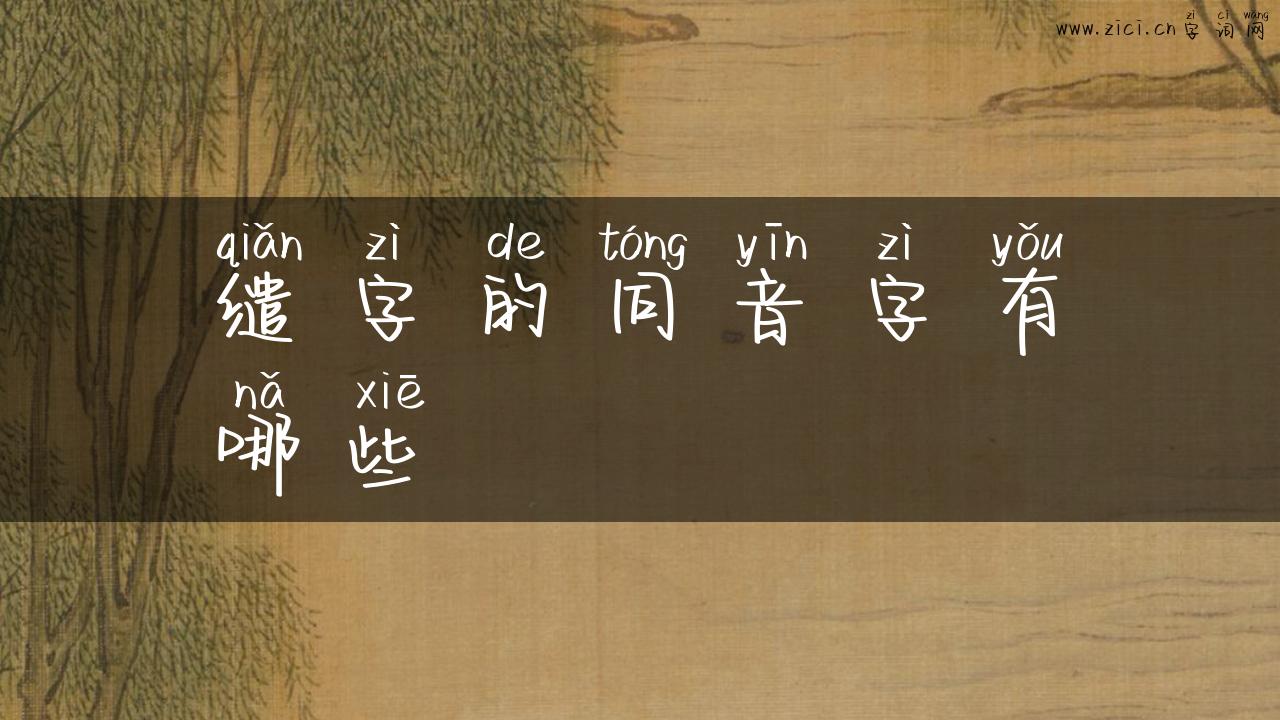 zì cí wǎng
www.zici.cn 字词网
qiǎn zì de tóng yīn zì yǒu
缱字的同音字有
nǎ xiē
哪些